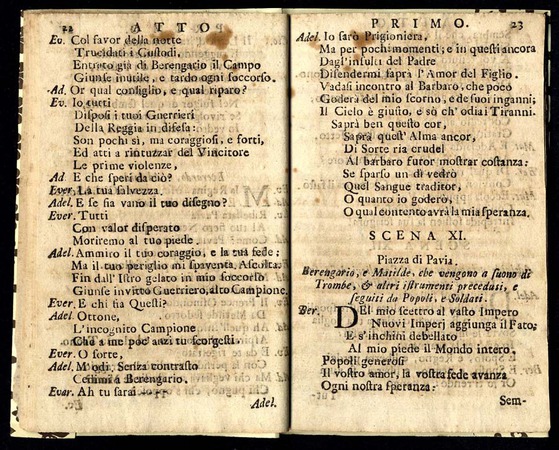 22 ATTO
Ev. Col favor della notte
Trucidati i Custodi,
Entrato già di Berengario il Campo
Giunse inutile, e tardo ogni soccorso.
Ad. Or qual consiglio, e qual riparo?
Ev. Io tutti
Disposi i tuoi Guerrieri
Della Reggia in difesa:
Son pochi sì, ma coraggiosi, e forti,
Ed atti a rintuzzar del Vincitore
Le prime violenze,
Ad E che speri da ciò?
Ever. La tua salvezza.
Adel. E se sia vano il tuo disegno?
Ever. Tutti
Con valor disperato
Moriremo al tuo piede.
Adel. Ammiro il tuo coraggio, e la tua fede:
Ma il tuo periglio mi spaventa. Ascolta.
Fin dall' Istro gelato in mio soccorso
Giunse invitto Guerriero, alto Campione.
Ever. E chi fia Questi?
Adel. Ottone,
L'incognito Campione
Che a me poc'anzi tu scorgesti.
Ever. O forte,
Adel. M'odi: Senza contrasto
Cedimi a Berengario.
Ever. Ah tu sarai
Adel.
PRIMO. 23
Adel. Io sarò Prigioniera,
Ma per pochi momenti; e in questi ancora
Dagl'insulti del Padre
Difendermi saprà l'Amor del Figlio.
Vadasi incontro al Barbaro, che poco
Goderà del mio scorno, e de suoi inganni;
Il Cielo è giusto, e sò ch' odia i Tiranni.
Saprà ben questo cor,
Saprà quest' Alma ancor,
Di Sorte ria crudel
Al barbaro furor mostrar costanza:
Se sparso un dì vedrò
Quel Sangue traditor,
O quanto io goderò,
O qual contento avrà la mia speranza.
SCENA XI.
Piazza di Pavia.
Berengario, e Matilde, che vengono a suono di
Trombe, & altri istrumenti preceduti, e
seguiti da Popoli, e Soldati.
Ber. DEl mio scettro al vasto Impero
Nuovi Imperj aggiunga il Fato;
E s'inchini debellato
Al mio piede il Mondo intero.
Popoli generosi
Il vostro amor, la vostra fede avanza
Ogni nostra speranza:
Sem-